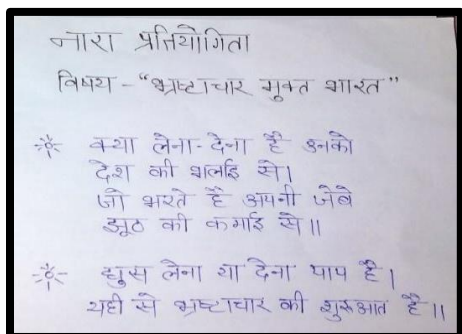 नारा प्रतियोगिता
विषय - "भ्रष्टाचार मुक्त भारत"
क्या लेना-देना है उनको
देश की भलाई से।
जो भरते है अपनी जेबे
झूठ की कमाई से॥
घुस लेना या देना पाप है।
यही से भ्रष्टाचार की शुरुआत है॥